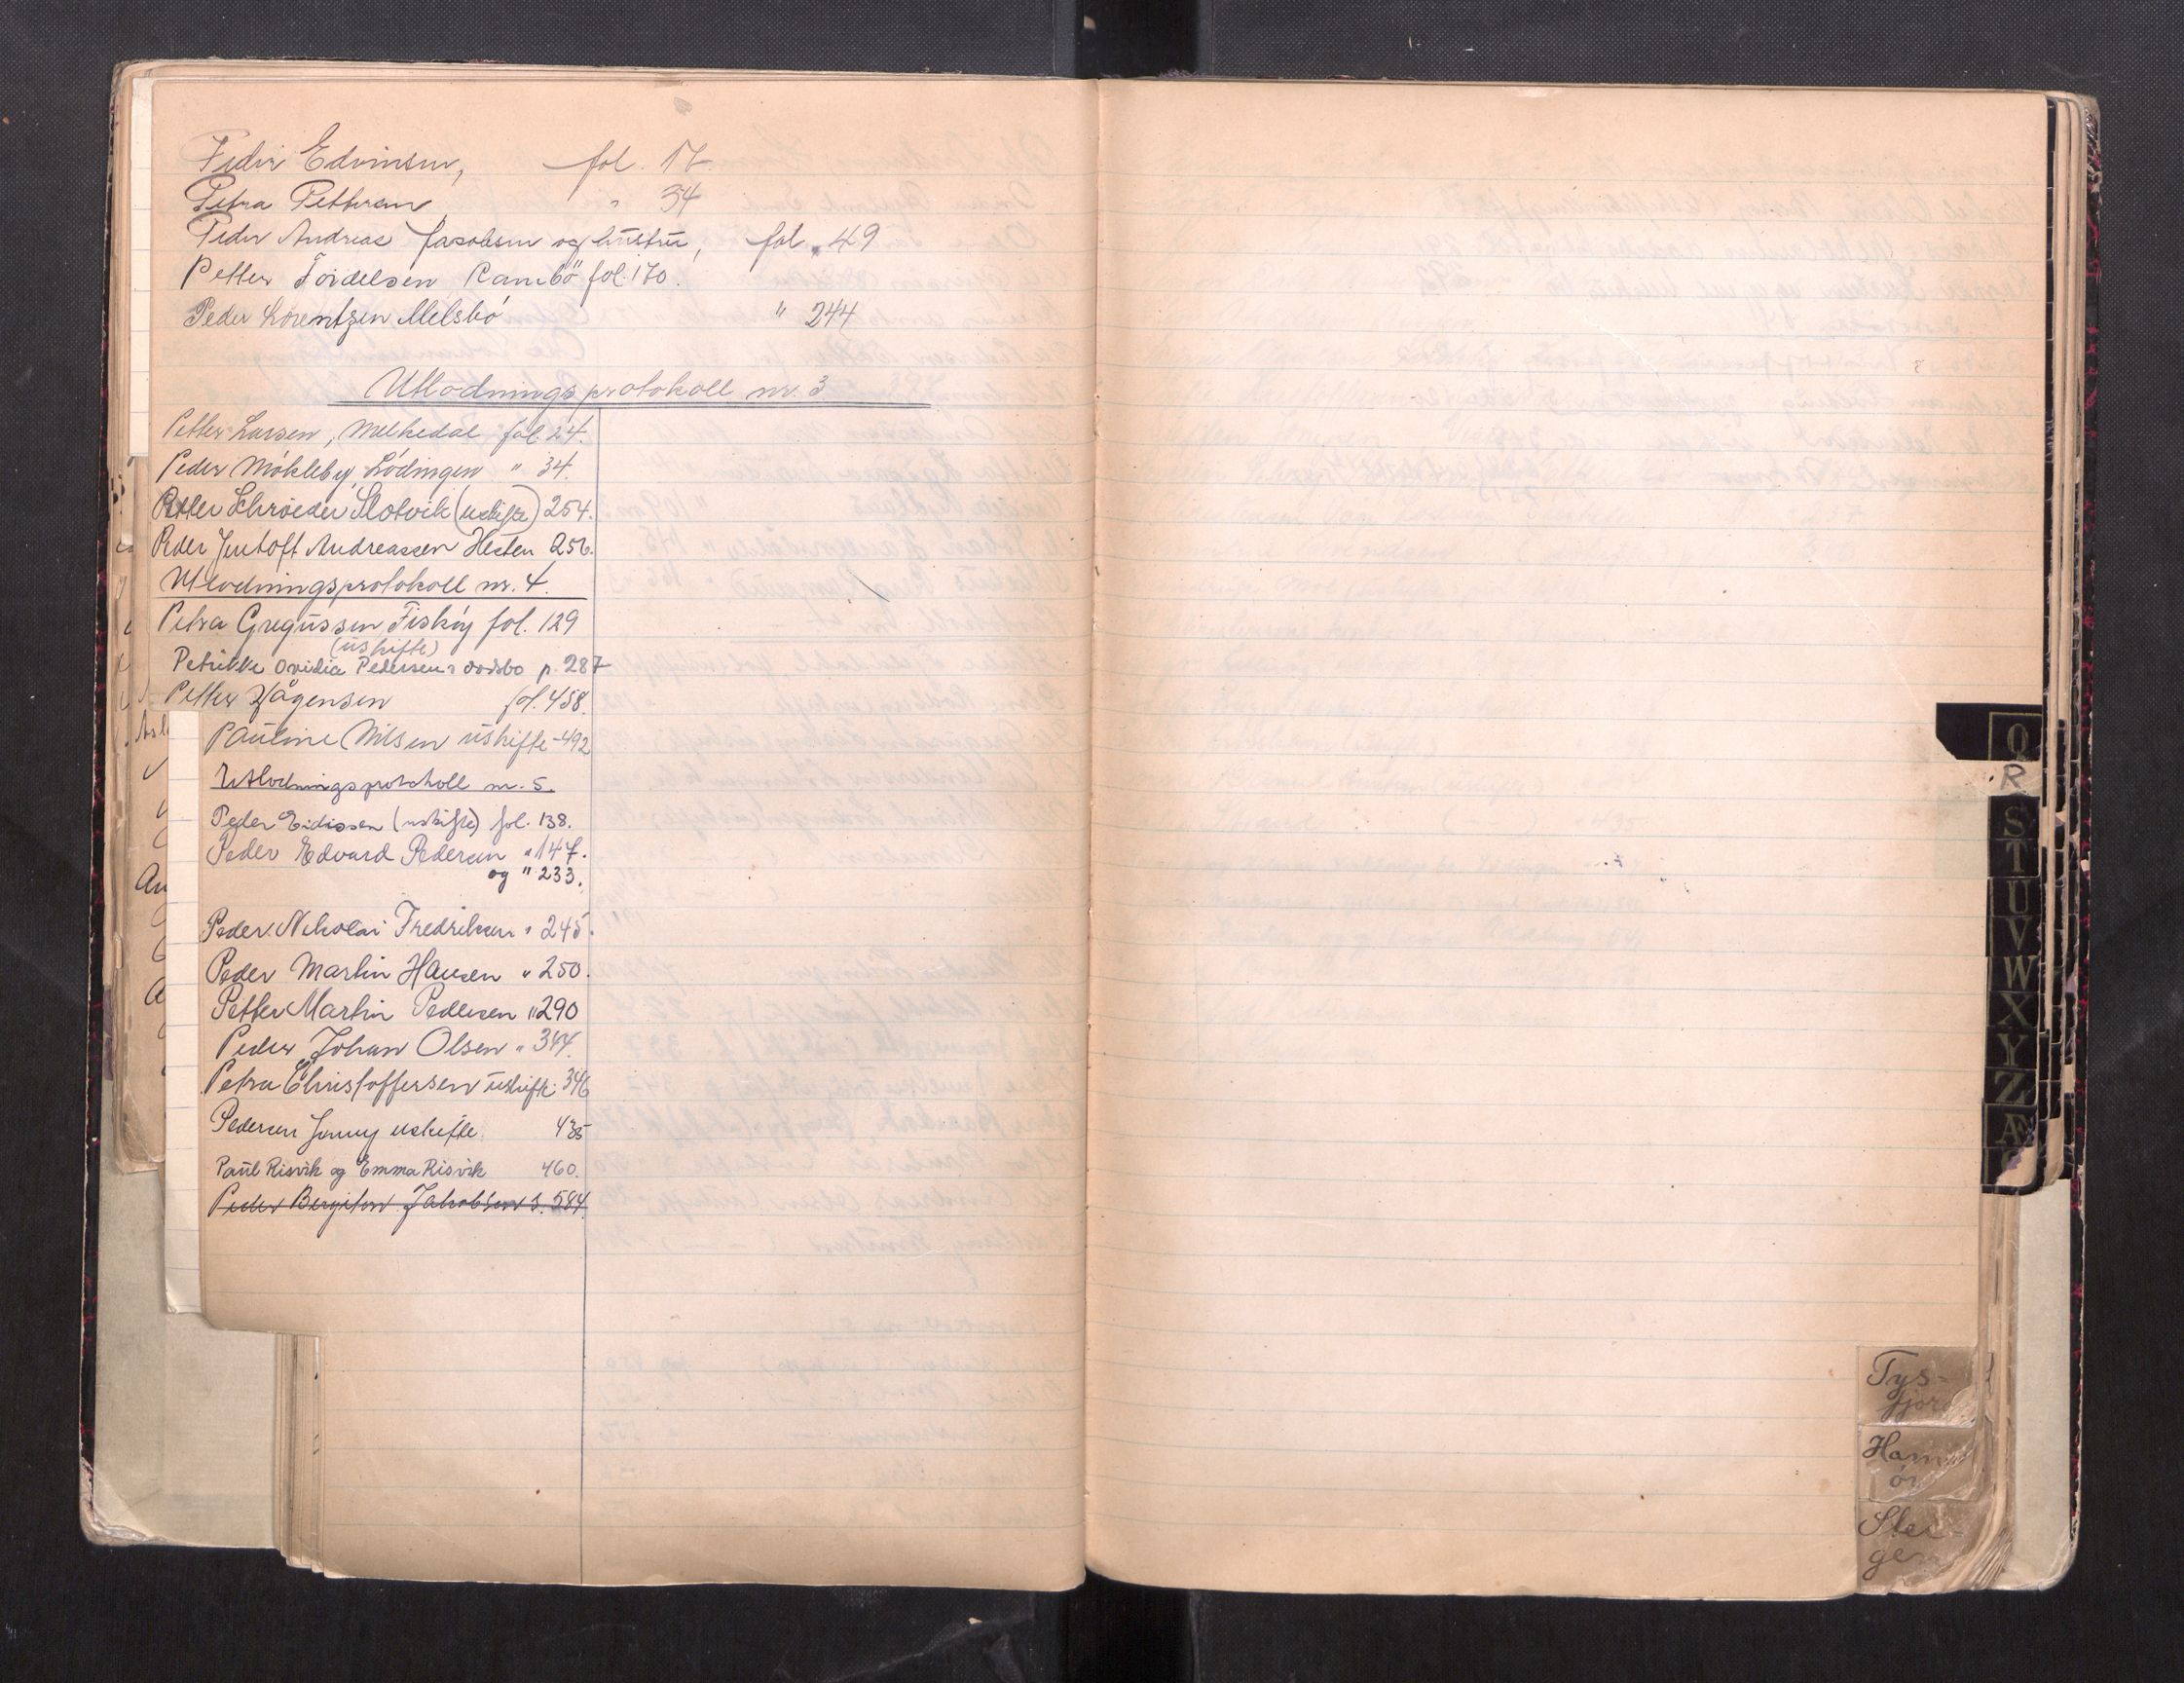 Peder Edvinsen, fol. 17.
Petra Pettersen " 34
Peder Andreas Jacobsen og hustru, fol. 49
Petter Tördelsen Rambö fol. 170.
Peder Lorentzen Melsbö " 244
Utlodningsprotokoll nr. 3
Petter Larsen, Melkedal fol. 24.
Peder Mökleby, Lödingen " 34.
Petter Schröeder Slotvik (uskifte) 254.
Peder Jentoft Andreassen Hesten 256.
Utlodningsprotokoll nr. 4.
Petra Gregussen Fisköy fol. 129
(uskifte)
Petrikke Ovidia Pedersens dödsbo p. 287
Petter Hågensen fol. 458.
Pauline Nilsen uskifte - 492
Utlodningsprotokoll nr. 5.
Peder Eidissen (uskifte) fol. 138.
Peder Edvard Pedersen " 147.
og " 233.
Peder Nikolai Fredriksen " 245.
Peder Martin Hansen " 250.
Petter Martin Pedersen " 290
Peder Johan Olsen " 344.
Petra Christoffersen uskifte: 346
Pedersen Jenny uskifte. 435
Paul Risvik og Emma Risvik 460.
Peder Bergiton Jakobsen s. 584.
Q
R
S
T
U
V
W
X
Y
Z
Æ
Tys-
fjord
Ham
ör
Stei-
gen